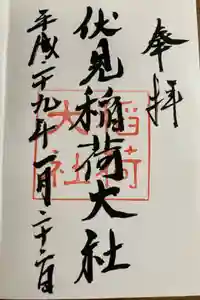 奉拝
伏見稲荷大社
平成二十九年一月二十
稲荷
大社